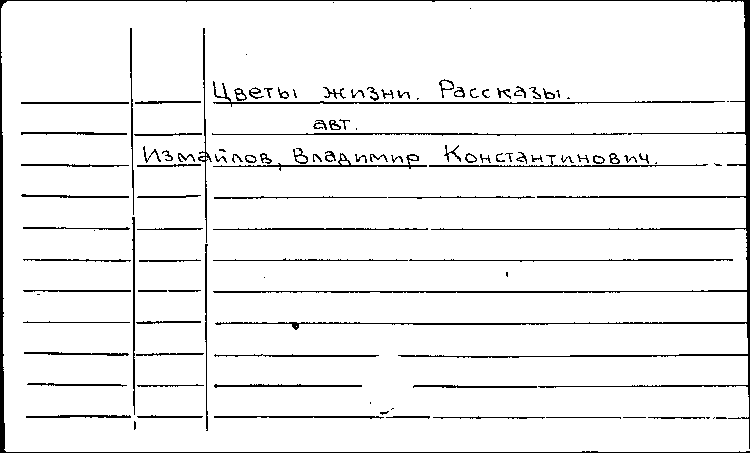 Цветы жизни. Рассказы.
авт.
Измайлов, Владимир Константинович.